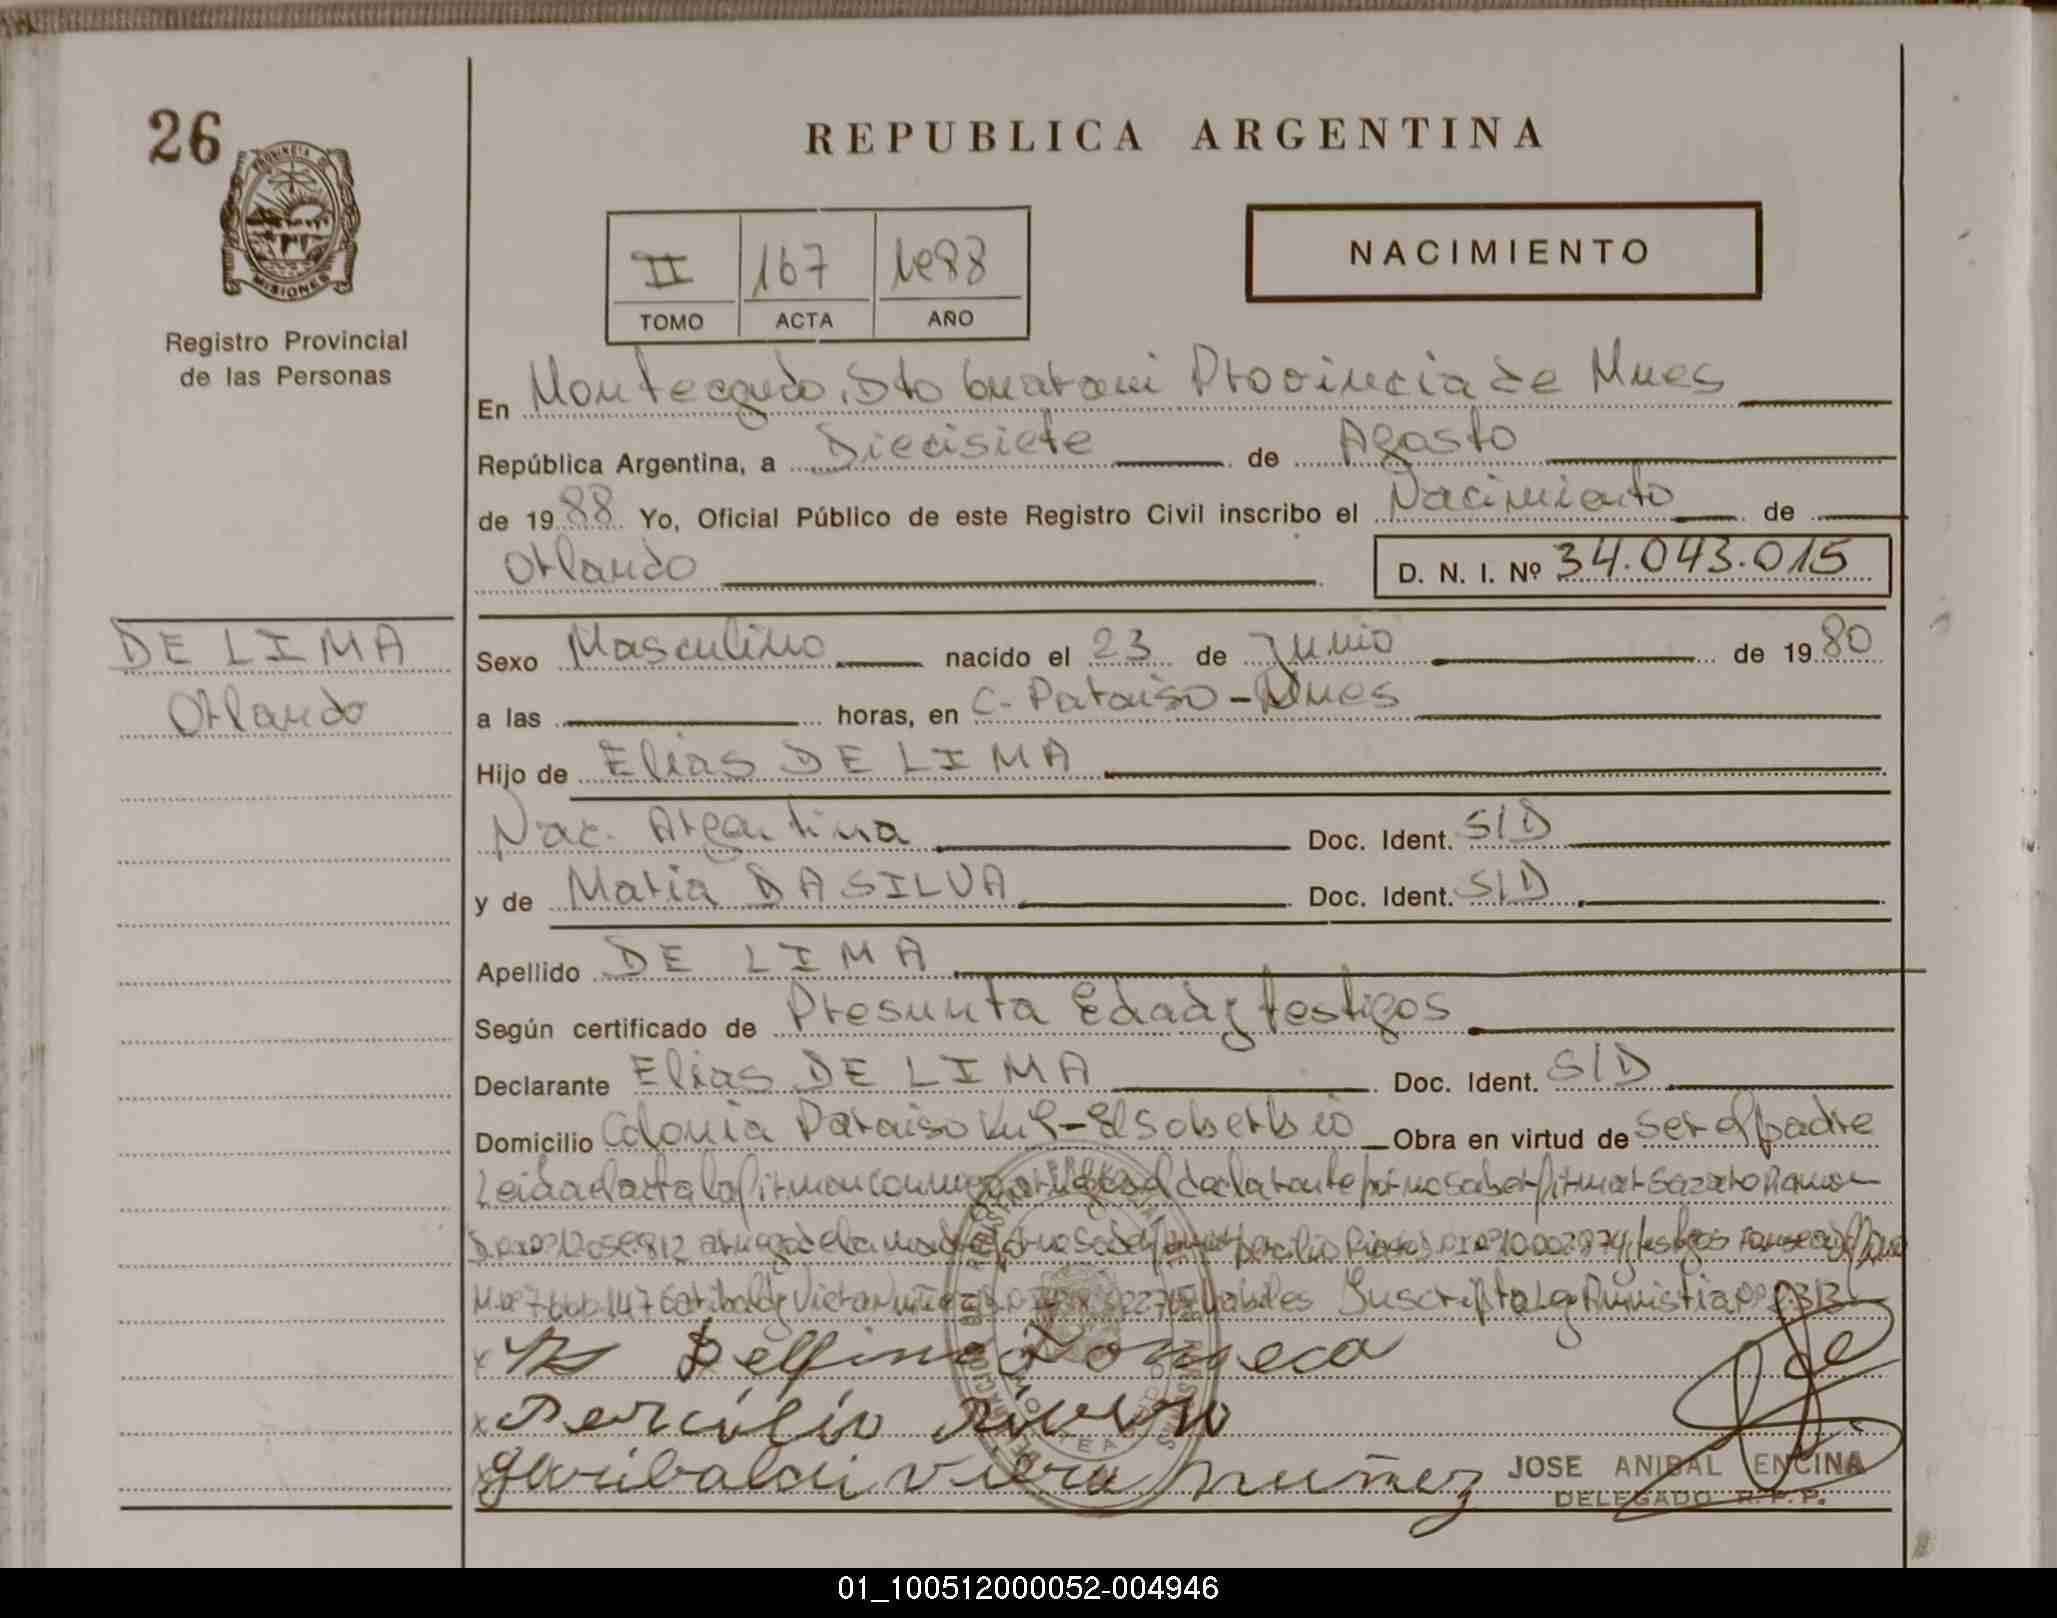 26
REPUBLICA ARGENTINA
PROVINCIA DE
MISIONES
Registro Provincial
de las Personas
NACIMIENTO
II 167 1988
TOMO ACTA AÑO
En Monteagudo. Dto Guarani Provincia de Mnes
República Argentina, a Diecisiete de Agosto
de 1988 Yo, Oficial Público de este Registro Civil inscribo el Nacimiento de
Orlando
D. N. I. Nº 34.043.015
DE LIMA
Orlando
Sexo Masculino nacido el 23 de Junio de 1980
a las horas, en C. Paraiso - Mnes
Hijo de Elias DE LIMA
Nac. Argentina Doc. Ident. S/D
y de Maria DA SILVA Doc. Ident. S/D
Apellido DE LIMA
Según certificado de Presunta Edad y testigos
Declarante Elias DE LIMA Doc. Ident. S/D
Domicilio Colonia Paraiso - El Soberbio Obra en virtud de ser el padre
Leida el acta la firman conmigo a ruego del declarante por no saber firmar Ramon
a ruego de la madre por no saber firmar testigos
habiles
Delfino Fonseca
Percilio
garibaldi viera nuñez
JOSE ANIBAL ENCINA
DELEGADO R. P. P.
01_100512000052-004946